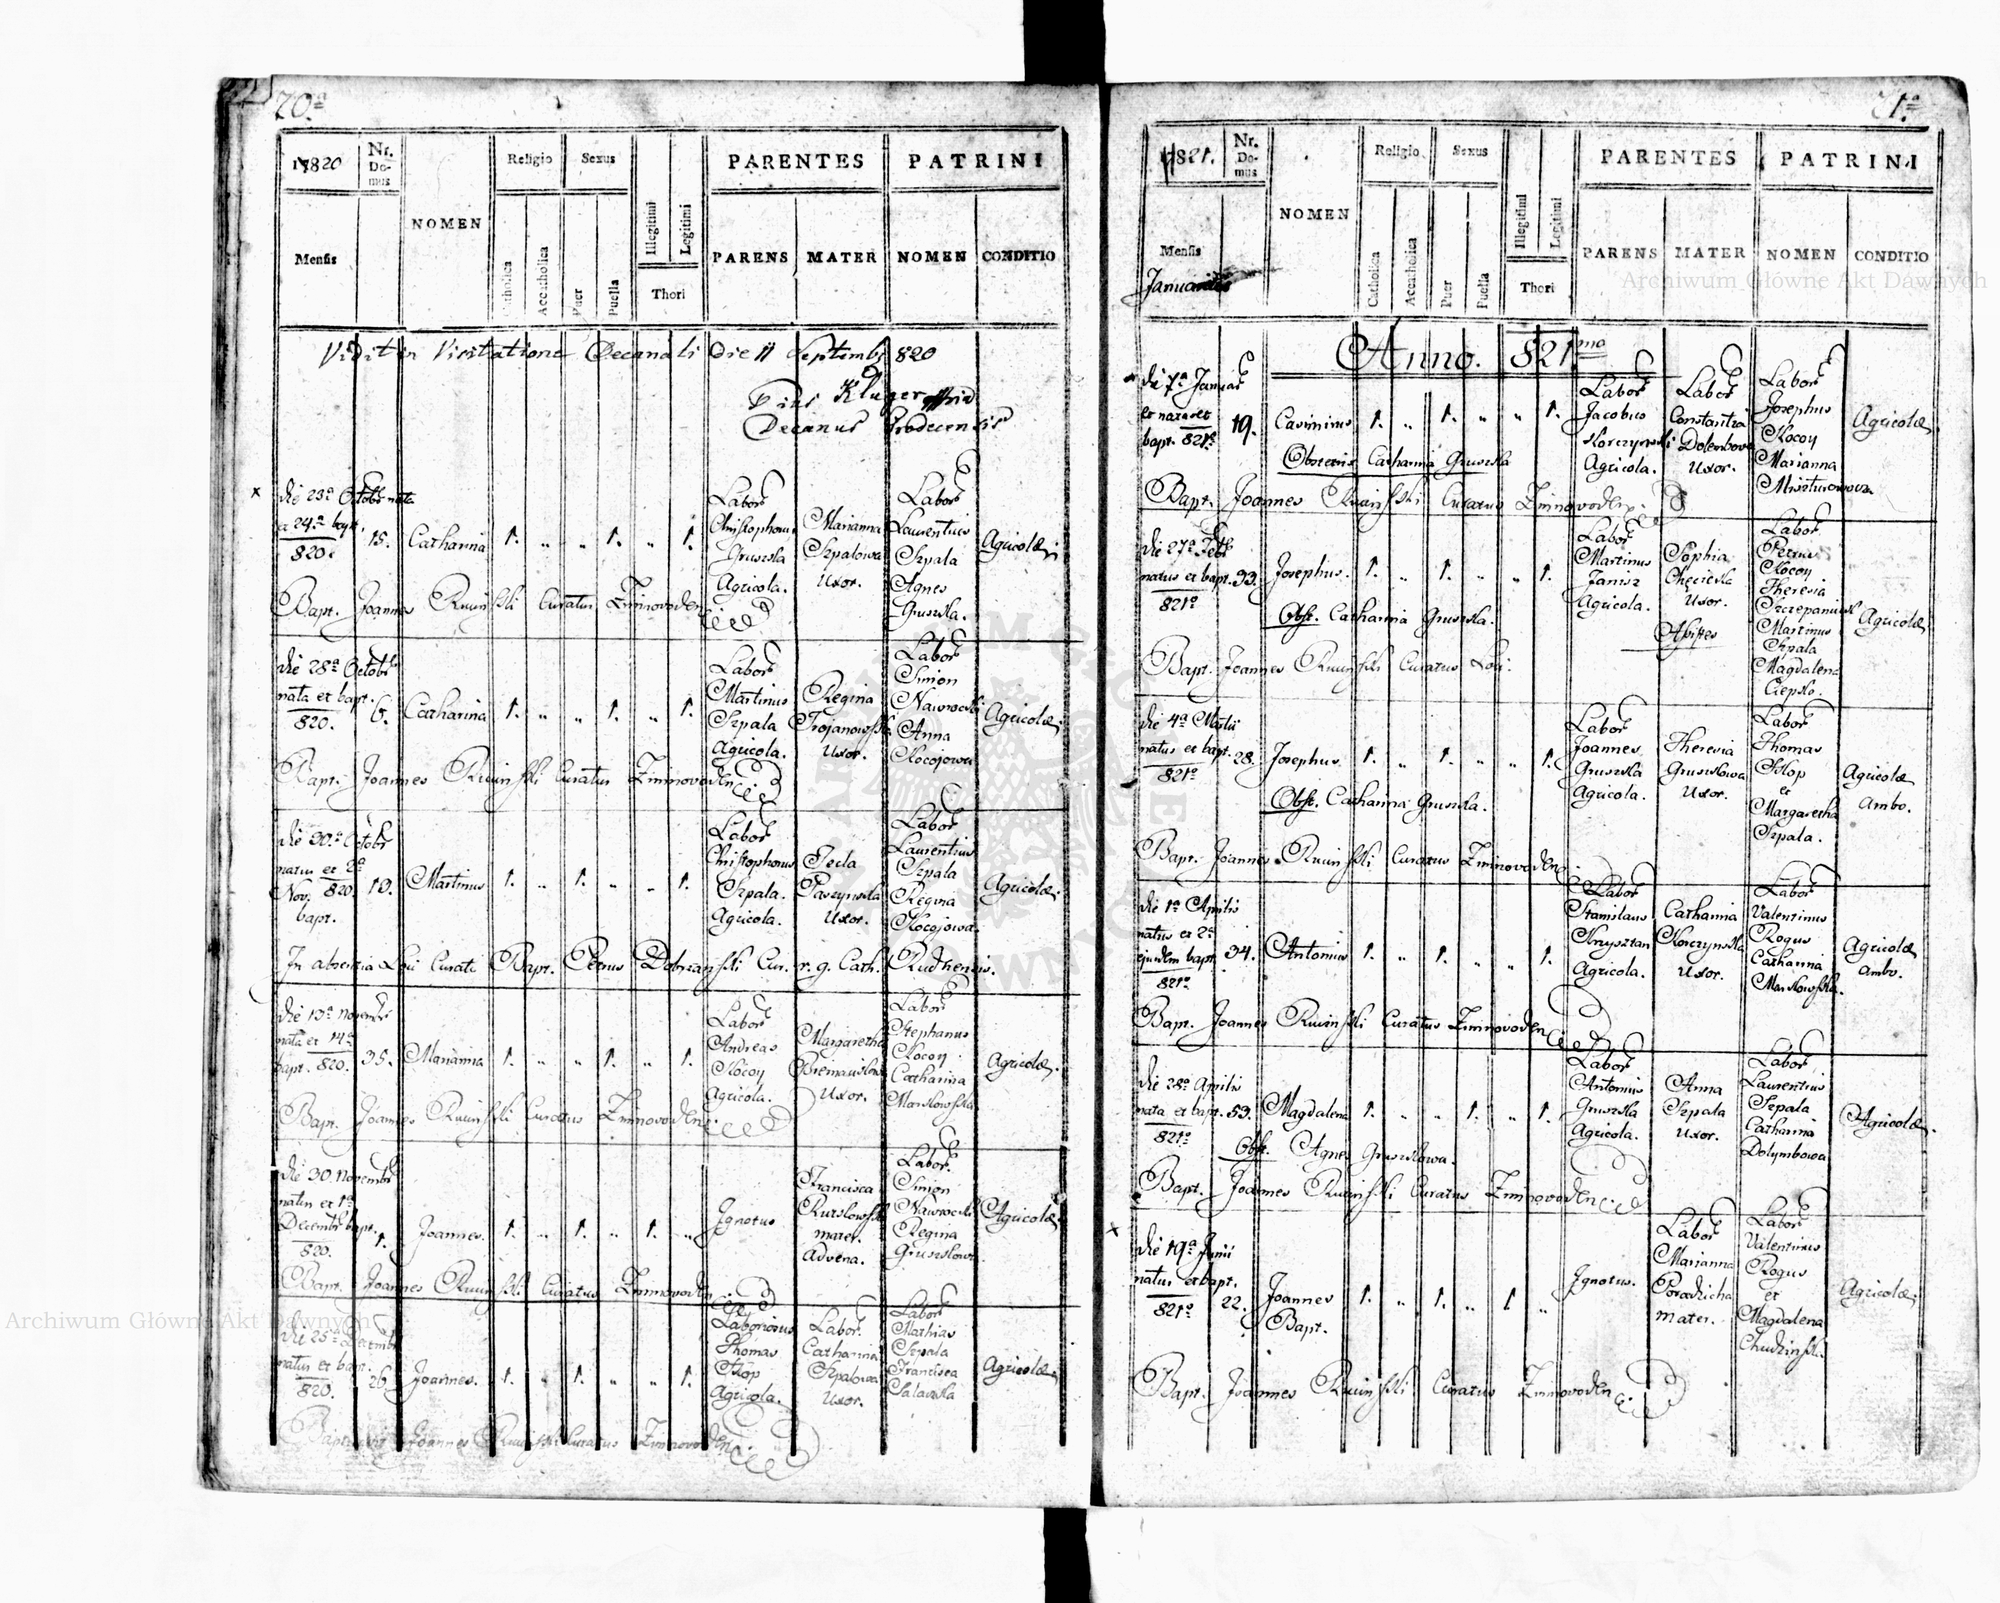 20.a
1820
Nr. Domus
NOMEN
Religio
Sexus
PARENTES
PATRINI
Mensis
Catholica
Accatholica
Puer
Puella
Illegitimi
Legitimi
Thori
PARENS
MATER
NOMEN
CONDITIO
Vidit in Visitatione Decanali die 11 Septembr 820
Pius Kluger
Decanus Grodecensis
x die 23a Octobr nata
a 24.a bapt.
820.
15.
Catharina
1. „ „ 1. „ 1.
Labor
Christophorus
Gruszka
Agricola.
Marianna
Szpalowa
Uxor.
Labor
Laurentius
Szpala
Agnes
Gruszka.
Agricolae
Bapt. Joannes Ruxinski Curatus Zimnovoden
die 28a Octobr
nata et bapt.
820.
6.
Catharina
1. „ „ 1. „ 1.
Labor
Martinus
Szpala
Agricola.
Regina
Trojanowska
Uxor.
Labor
Simon
Nawrocki
Anna
Kocojowa
Agricolae
Bapt. Joannes Ruxinski Curatus Zimnovoden
die 30.a Octobr
natus et 2a
Nov. 820.
bapt.
10.
Martinus
1. „ 1. „ „ 1.
Labor
Christophorus
Szpala.
Agricola.
Tecla
Paszynska
Uxor.
Labor
Laurentius
Szpala
Regina
Kocojowa.
Agricolae.
In absentia Loci Curati Bapt. Petrus Dobrzanski Cur. r. g. Cath. Rudnensis.
die 13a Novembr
nata et 14a
bapt. 820.
35.
Marianna
1. „ „ 1. „ 1.
Labor
Andreas
Kocoy
Agricola.
Margaretha
Uxor.
Labor
Stephanus
Kocoy
Catharina
Marskowska
Agricolae.
Bapt. Joannes Ruxinski Curatus Zimnovoden
die 30 Novembr
natus et 1a
Decembr bapt.
820.
1.
Joannes.
1. „ 1. „ 1. „
Ignotus
Francisca
mater.
Advena.
Labor.
Simon
Nawrocki
Regina
Gruszkowa
Agricolae
Bapt. Joannes Ruxinski Curatus Zimnovoden
die 25a Decembr
natus et bapt.
820.
26
Joannes.
1. „ 1. „ „ 1.
Laboriosus
Thomas
Agricola.
Labor.
Catharina
Szpalowa
Uxor.
Labor
Mathias
Szpala
Francisca
Salavska
Agricolae.
Joannes Ruxinski Curatus Zimnovoden
21.a
1821.
Nr. Domus
NOMEN
Religio
Sexus
PARENTES
PATRINI
Mensis
Januarius
Catholica
Accatholica
Puer
Puella
Illegitimi
Legitimi
Thori
PARENS
MATER
NOMEN
CONDITIO
Anno. 821.mo
die 7a Januar
et natus et
bapt. 821o
19.
Casimirus
1. „ 1. „ „ 1.
Labor
Jacobus
Korczynski
Agricola.
Labor
Constantia
Dolembowa
Uxor.
Labor
Josephus
Kocoy
Marianna
Agricolae.
Obstetrix Catharina Gruszka
Bapt. Joannes Ruxinski Curatus Zimnovoden.
die 27a Feb
natus et bapt.
821o
33.
Josephus.
1. „ 1. „ „ 1.
Labor
Martinus
Janisz
Agricola.
Sophia
Uxor.
Labor
Petrus
Kocoy
Theresia
Szczepaniuk
Agricolae
Obst. Catharina Gruszka.
Assistes
Martinus
Szpala
Magdalena
Ciepko.
Bapt. Joannes Ruxinski Curatus Loci.
die 4a Martii
natus et bapt.
821o
28.
Josephus.
1. „ 1. „ „ 1.
Labor
Joannes
Gruszka
Agricola.
Theresia
Gruszkowa
Uxor.
Labor
Thomas
et
Margaretha
Szpala.
Agricolae
ambo.
Obst. Catharina Gruszka.
Bapt. Joannes Ruxinski Curatus Zimnovoden
die 1a Aprilis
natus et 2a
ejusdem bapt.
821o
34.
Antonius
1. „ 1. „ „ 1.
Labor
Stanislaus
Krysztan
Agricola.
Catharina
Korczynska
Uxor.
Labor
Valentinus
Rogus
Catharina
Marskowska.
Agricolae
ambo.
Bapt. Joannes Ruxinski Curatus Zimnovoden
die 28a Aprilis
nata et bapt.
821o
53.
Magdalena
1. „ „ 1. „ 1.
Labor
Antonius
Gruszka
Agricola.
Anna
Szpala
Uxor.
Labor
Laurentius
Szpala
Catharina
Dolymbowa
Agricolae.
Obst. Agnes Gruszkowa.
Bapt. Joannes Ruxinski Curatus Zimnovoden
x die 19a Junii
natus et bapt.
821o
22.
Joannes
Bapt.
1. „ 1. „ 1 „
Ignotus.
Labor
Marianna
mater.
Labor
Valentinus
Rogus
et
Magdalena
Chudzinski.
Agricolae.
Bapt. Joannes Ruxinski Curatus Zimnovoden
Archiwum Główne Akt Dawnych
Archiwum Główne Akt Dawnych